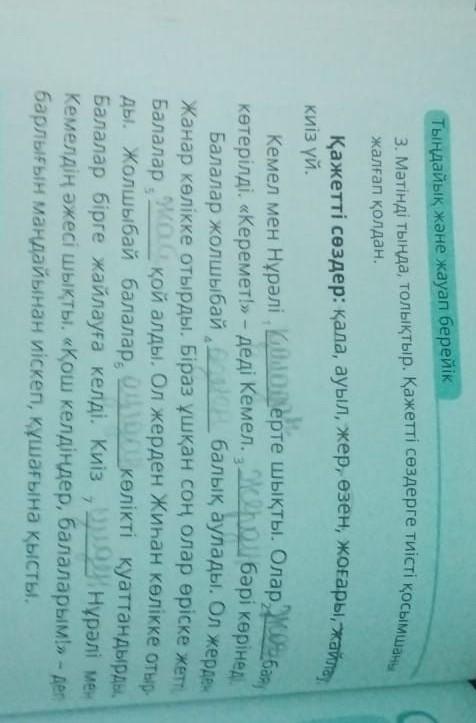 Тыңдайық және жауап берейік
3. Мәтінді тыңда, толықтыр. Қажетті сөздерге тиісті қосымшаны
жалғап қолдан.
Қажетті сөздер: қала, ауыл, жер, өзен, жоғары, жайлау,
киіз үй.
Кемел мен Нұрәлі 1 ерте шықты. Олар 2 баяу
көтерілді. «Керемет!» – деді Кемел. 3 бәрі көрінеді.
Балалар жолшыбай 4 балық аулады. Ол жерден
Жанар көлікке отырды. Біраз ұшқан соң олар өріске жетті.
Балалар 5 қой алды. Ол жерден Жиһан көлікке отыр-
ды. Жолшыбай балалар 6 көлікті қуаттандырды.
Балалар бірге жайлауға келді. Киіз 7 Нұрәлі мен
Кемелдің әжесі шықты. «Қош келдіңдер, балаларым!» – деп
барлығын маңдайынан иіскеп, құшағына қысты.